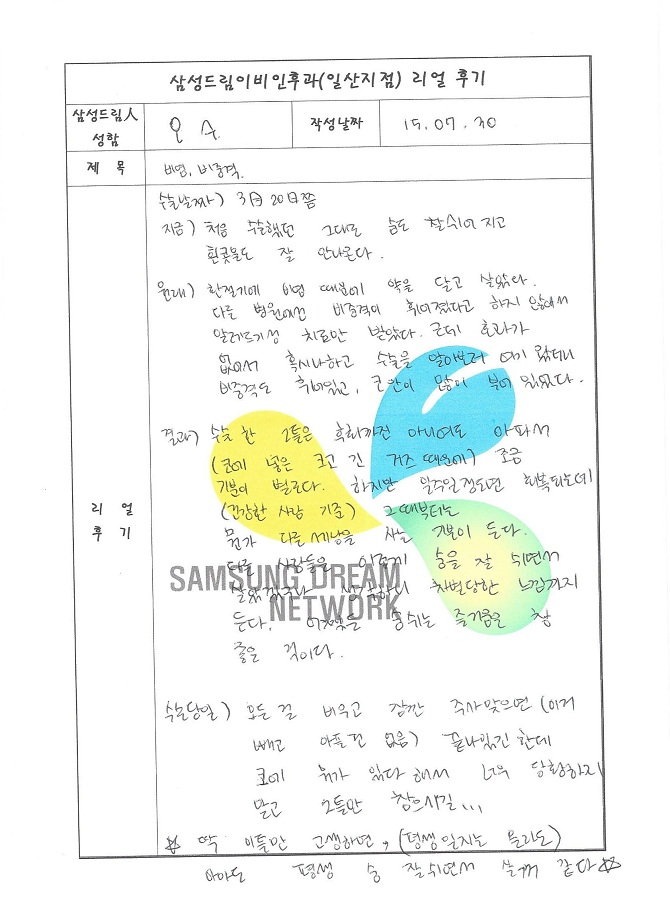 삼성드림이비인후과(일산지점) 리얼 후기
삼성드림人
성함
작성날짜
15. 07. 30
제 목
비염, 비중격.
리 얼
후 기
수술날짜) 3月 20日쯤
지금) 처음 수술했던 그대로 숨도 잘 쉬어지고
흰콧물도 잘 안나온다.
원래) 환절기에 비염 때문에 약을 달고 살았다.
다른 병원에선 비중격이 휘어졌다고 하지 않아서
알레르기성 치료만 받았다. 근데 효과가
없어서 혹시나하고 수술을 알아보러 여기 왔더니
비중격도 휘어있고, 코안이 많이 부어 있었다.
결과) 수술 한 2틀은 죽을까진 아니어도 아파서
(코에 넣은 크고 긴 거즈 때문에) 조금
기분이 별로다. 하지만 일주일정도면 회복되는데
(건강한 사람 기준) 그때부터는
뭔가 다른세상을 사는 기분이 든다.
다른 사람들은 이렇게 숨을 잘 쉬면서
살았겠구나 생각하니 차별당한 느낌까지
든다. 어쨌든 숨쉬는 즐거움은 참
좋은 것이다.
SAMSUNG DREAM
NETWORK
수술당일) 모든 걸 비우고 잠깐 주사맞으면 (이거
빼고 아플 건 없음) 끝나있긴 한데
코에 뭐가 있다 해서 너무 당황하지
말고 2틀만 참으시길...
☆ 딱 이틀만 고생하면, (평생일지는 몰라도)
아마도 평생 숨 잘쉬면서 살꺼 같다☆